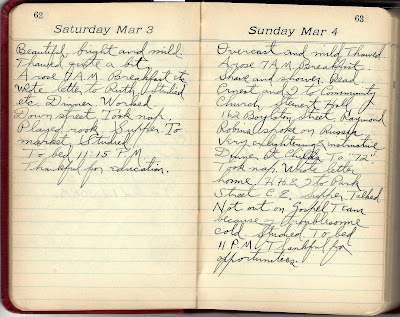 62
Saturday Mar 3
Beautiful, bright and mild.
Thawed quite a bit.
Arose 7 A.M. Breakfast etc.
Wrote letter to Ruth, Studied
etc. Dinner. Worked
Down street. Took nap.
Played rook. Supper. To
market. Studied
To bed 11:15 P.M.
Thankful for education.
63
Sunday Mar 4
Overcast and mild. Thawed.
Arose 7 A.M. Breakfast.
Shave and shower. Read.
Ernest and I to Community
Church, Steinert Hall
162 Boylston Street. Raymond
Robins spoke on Russia
Very enlightening & instructive
Dinner at Childs. To "72"
Took nap. Wrote letter
home. H.H. & I to Park
Street C.E. Supper. Talked
Not out on Gospel Team
because of troublesome
cold. Studied. To bed
11 P.M. Thankful for
opportunities.